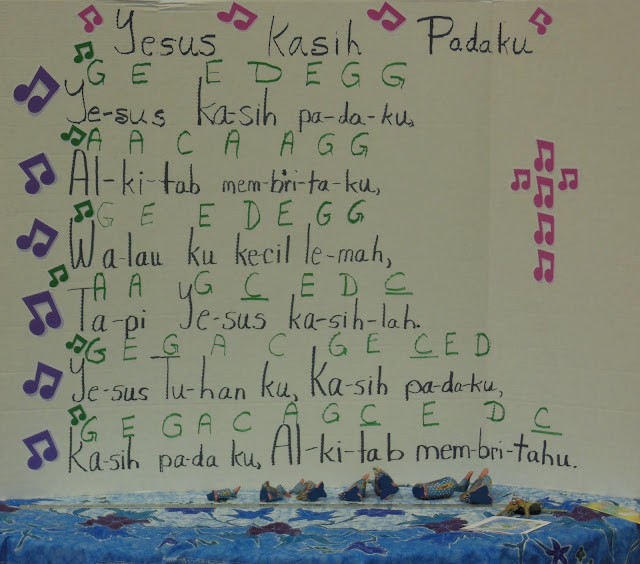 Yesus Kasih Padaku
G E E D E G G
Ye-sus Ka-sih pa-da-ku,
A A C A A G G
Al-ki-tab mem-bri-ta-ku,
G E E D E G G
Wa-lau ku ke-cil le-mah,
A A G C E D C
Ta-pi Ye-sus ka-sih-lah.
G E G A C G E C E D
Ye-sus Tu-han ku, Ka-sih pa-da-ku,
G E G A C A G C E D C
Ka-sih pa-da ku, Al-ki-tab mem-bri-tahu.